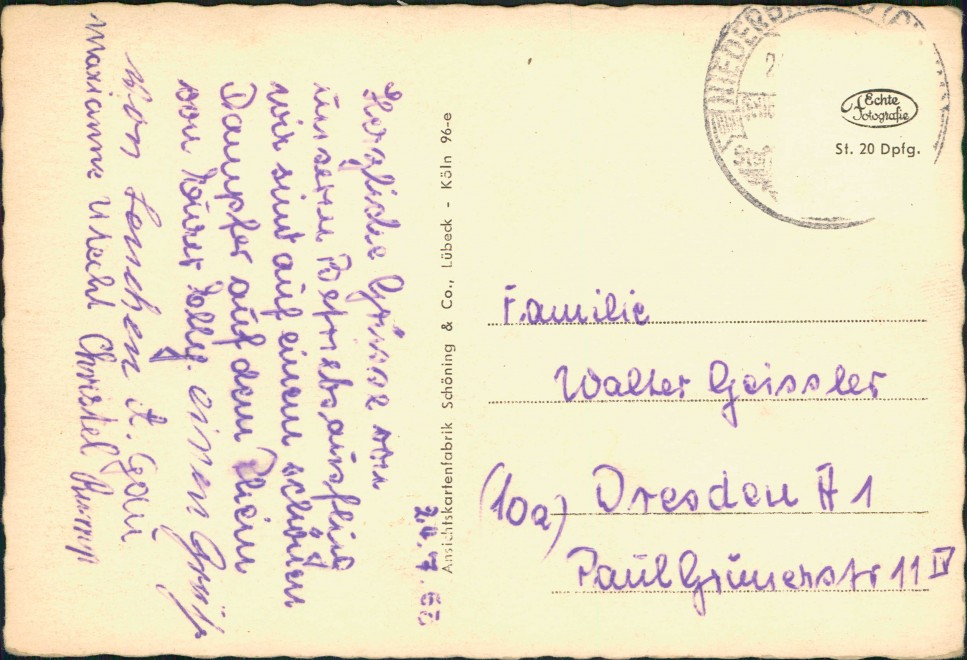 20.7.60
Herzliche Grüsse von
unserem Betriebsausflug
wir sind auf einem schönen
Dampfer auf dem Rhein
von Eurer Elly. einen Gruß
von Lenchen
Marianne Christel
Ansichtskartenfabrik Schöning & Co., Lübeck - Köln 96-e
Echte
Fotografie
St. 20 Dpfg.
Familie
Walter Geissler
(10a) Dresden A 1
Paul Grunerstr 11 IV